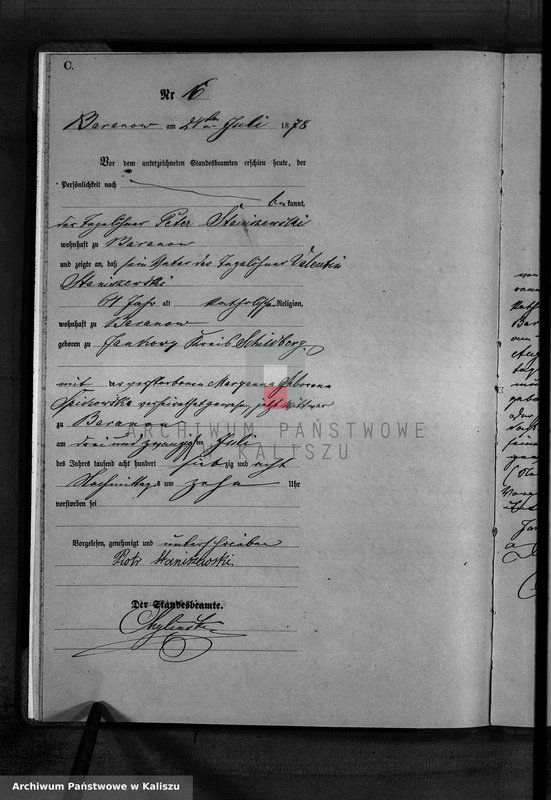 C.
Nr 16
Baranow am 24ten Juli 1878
Vor dem unterzeichneten Standesbeamten erschien heute, der
Persönlichkeit nach
bekannt,
der Tagelöhner Peter Staniszewski
wohnhaft zu Baranow
und zeigte an, daß sein Vater der Tagelöhner Valentin
Staniszewski
61 Jahr alt katholischer Religion,
wohnhaft zu Baranow
geboren zu Jankowy Kreis Schildberg
mit der verstorbenen Maryanna geborene
verheirathet gewesen, jetzt Wittwer
zu Baranow
am drei und zwanzigsten Juli
des Jahres tausend acht hundert siebzig und acht
Nachmittags um zehn Uhr
verstorben sei
Vorgelesen, genehmigt und unterschrieben
Piotr Staniszewski.
Der Standesbeamte.
ARCHIWUM PAŃSTWOWE
W KALISZU
Archiwum Państwowe w Kaliszu